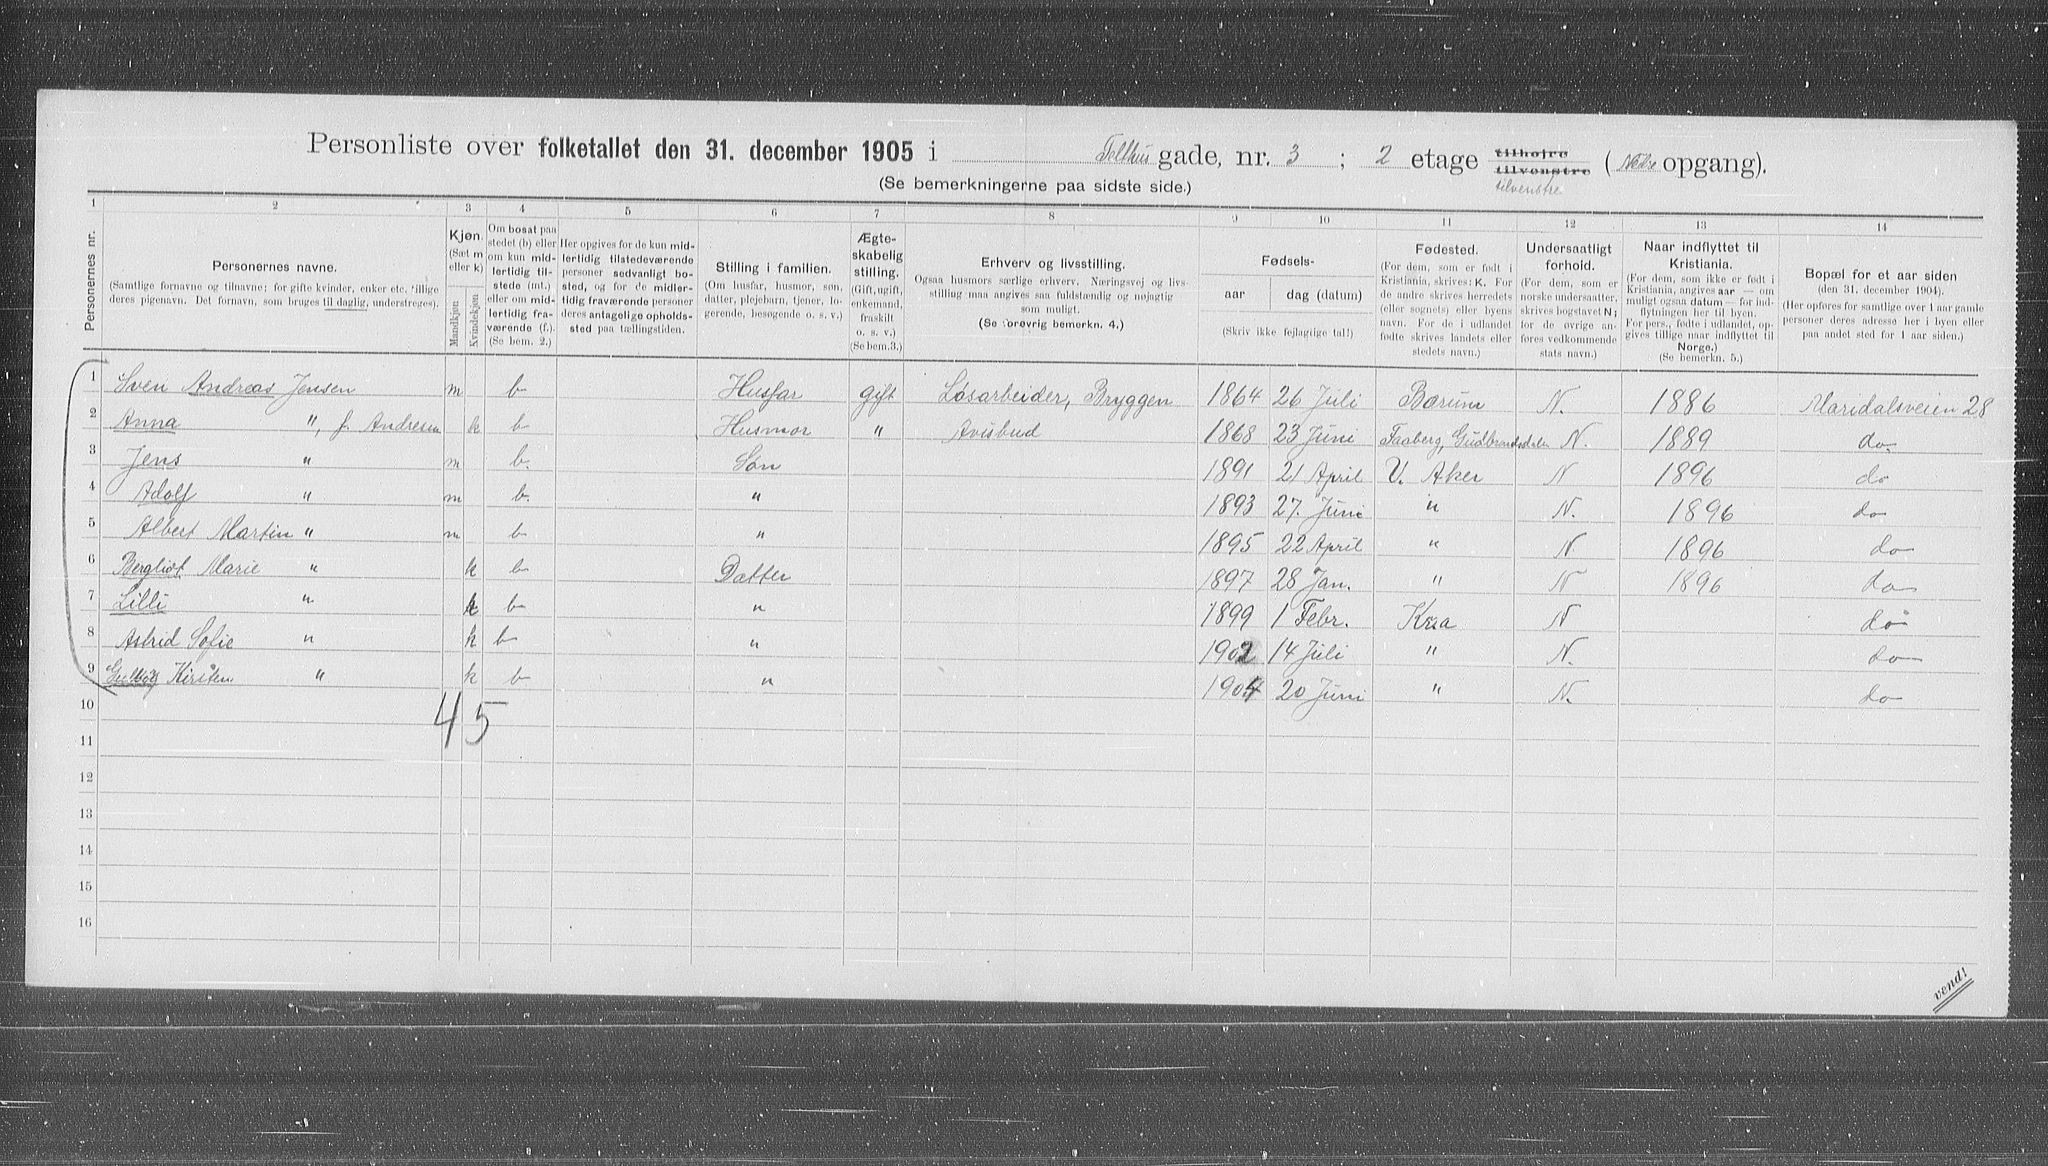 Personliste over folketallet den 31. december 1905 i Telthus gade, nr. 3 ; 2 etage tilhøjre tilvenstre tilvenstre ( opgang).
(Se bemerkningerne paa sidste side.)
1 2 3 4 5 6 7 8 9 10 11 12 13 14
Personernes nr.
Personernes navne.
(Samtlige fornavne og tilnavne; for gifte kvinder, enker etc. tillige
deres pigenavn. Det fornavn, som bruges til daglig, understreges).
Kjøn.
(Sæt m
eller k)
Mandkjøn
Kvindekjøn
Om bosat paa
stedet (b) eller
om kun mid-
lertidig til-
stede (mt.)
eller om mid-
lertidig fra-
værende (f.).
(Se bem. 2.)
Her opgives for de kun mid-
lertidig tilstedeværende
personer sedvanligt bo-
sted, og for de midler-
tidig fraværende personer
deres antagelige opholds-
sted paa tællingstiden.
Stilling i familien.
(Om husfar, husmor, søn,
datter, plejebarn, tjener, lo-
gerende, besøgende o. s. v.)
Ægte-
skabelig
stilling.
(Gift, ugift,
enkemand,
fraskilt
o. s. v.)
(Se bem. 3.)
Erhverv og livsstilling.
Ogsaa husmors særlige erhverv. Næringsvej og livs-
stilling maa angives saa fuldstændig og nøjagtig
som muligt.
(Se forøvrig bemerkn. 4.)
Fødsels-
aar dag (datum)
(Skriv ikke fejlagtige tal!)
Fødested.
(For dem, som er født i
Kristiania, skrives: K. For
de andre skrives herredets
(eller sognets) eller byens
navn. For de i udlandet
fødte skrives landets eller
stedets navn.)
Undersaatligt
forhold.
(For dem, som er
norske undersaatter,
skrives bogstavet N;
for de øvrige an-
føres vedkommende
stats navn.)
Naar indflyttet til
Kristiania.
(For dem, som ikke er født i
Kristiania, angives aar — om
muligt ogsaa datum — for ind-
flytningen her til byen.
For pers., fødte i udlandet, op-
gives tillige naar indflyttet til
Norge.)
(Se bemerkn. 5.)
Bopæl for et aar siden
(den 31. december 1904).
(Her opføres for samtlige over 1 aar gamle
personer deres adresse her i byen eller
paa andet sted for 1 aar siden.)
1 Sven Andreas Jensen m b Husfar gift Løsarbeider, Bryggen 1864 26 Juli Bærum N. 1886 Maridalsveien 28
2 Anna ", f. Andresen k b Husmor " Avisbud 1868 23 Juni Faaberg, Gudbrandsdalen N. 1889 do.
3 Jens " m b. Søn 1891 21 April V. Aker N 1896 do
4 Adolf " m b. " 1893 27. Juni " N. 1896 do
5 Albert Martin " m b " 1895 22 April " N 1896 do
6 Bergliot Marie " k b Datter 1897 28 Jan. " N 1896 do
7 Lilli " k b " 1899 1 Febr. Kra N do
8 Astrid Sofie " k b " 1902 14 Juli " N. do
9 Kirsten " k b " 1904 20 Juni " N. do
10 4 5
11
12
13
14
15
16
vend!